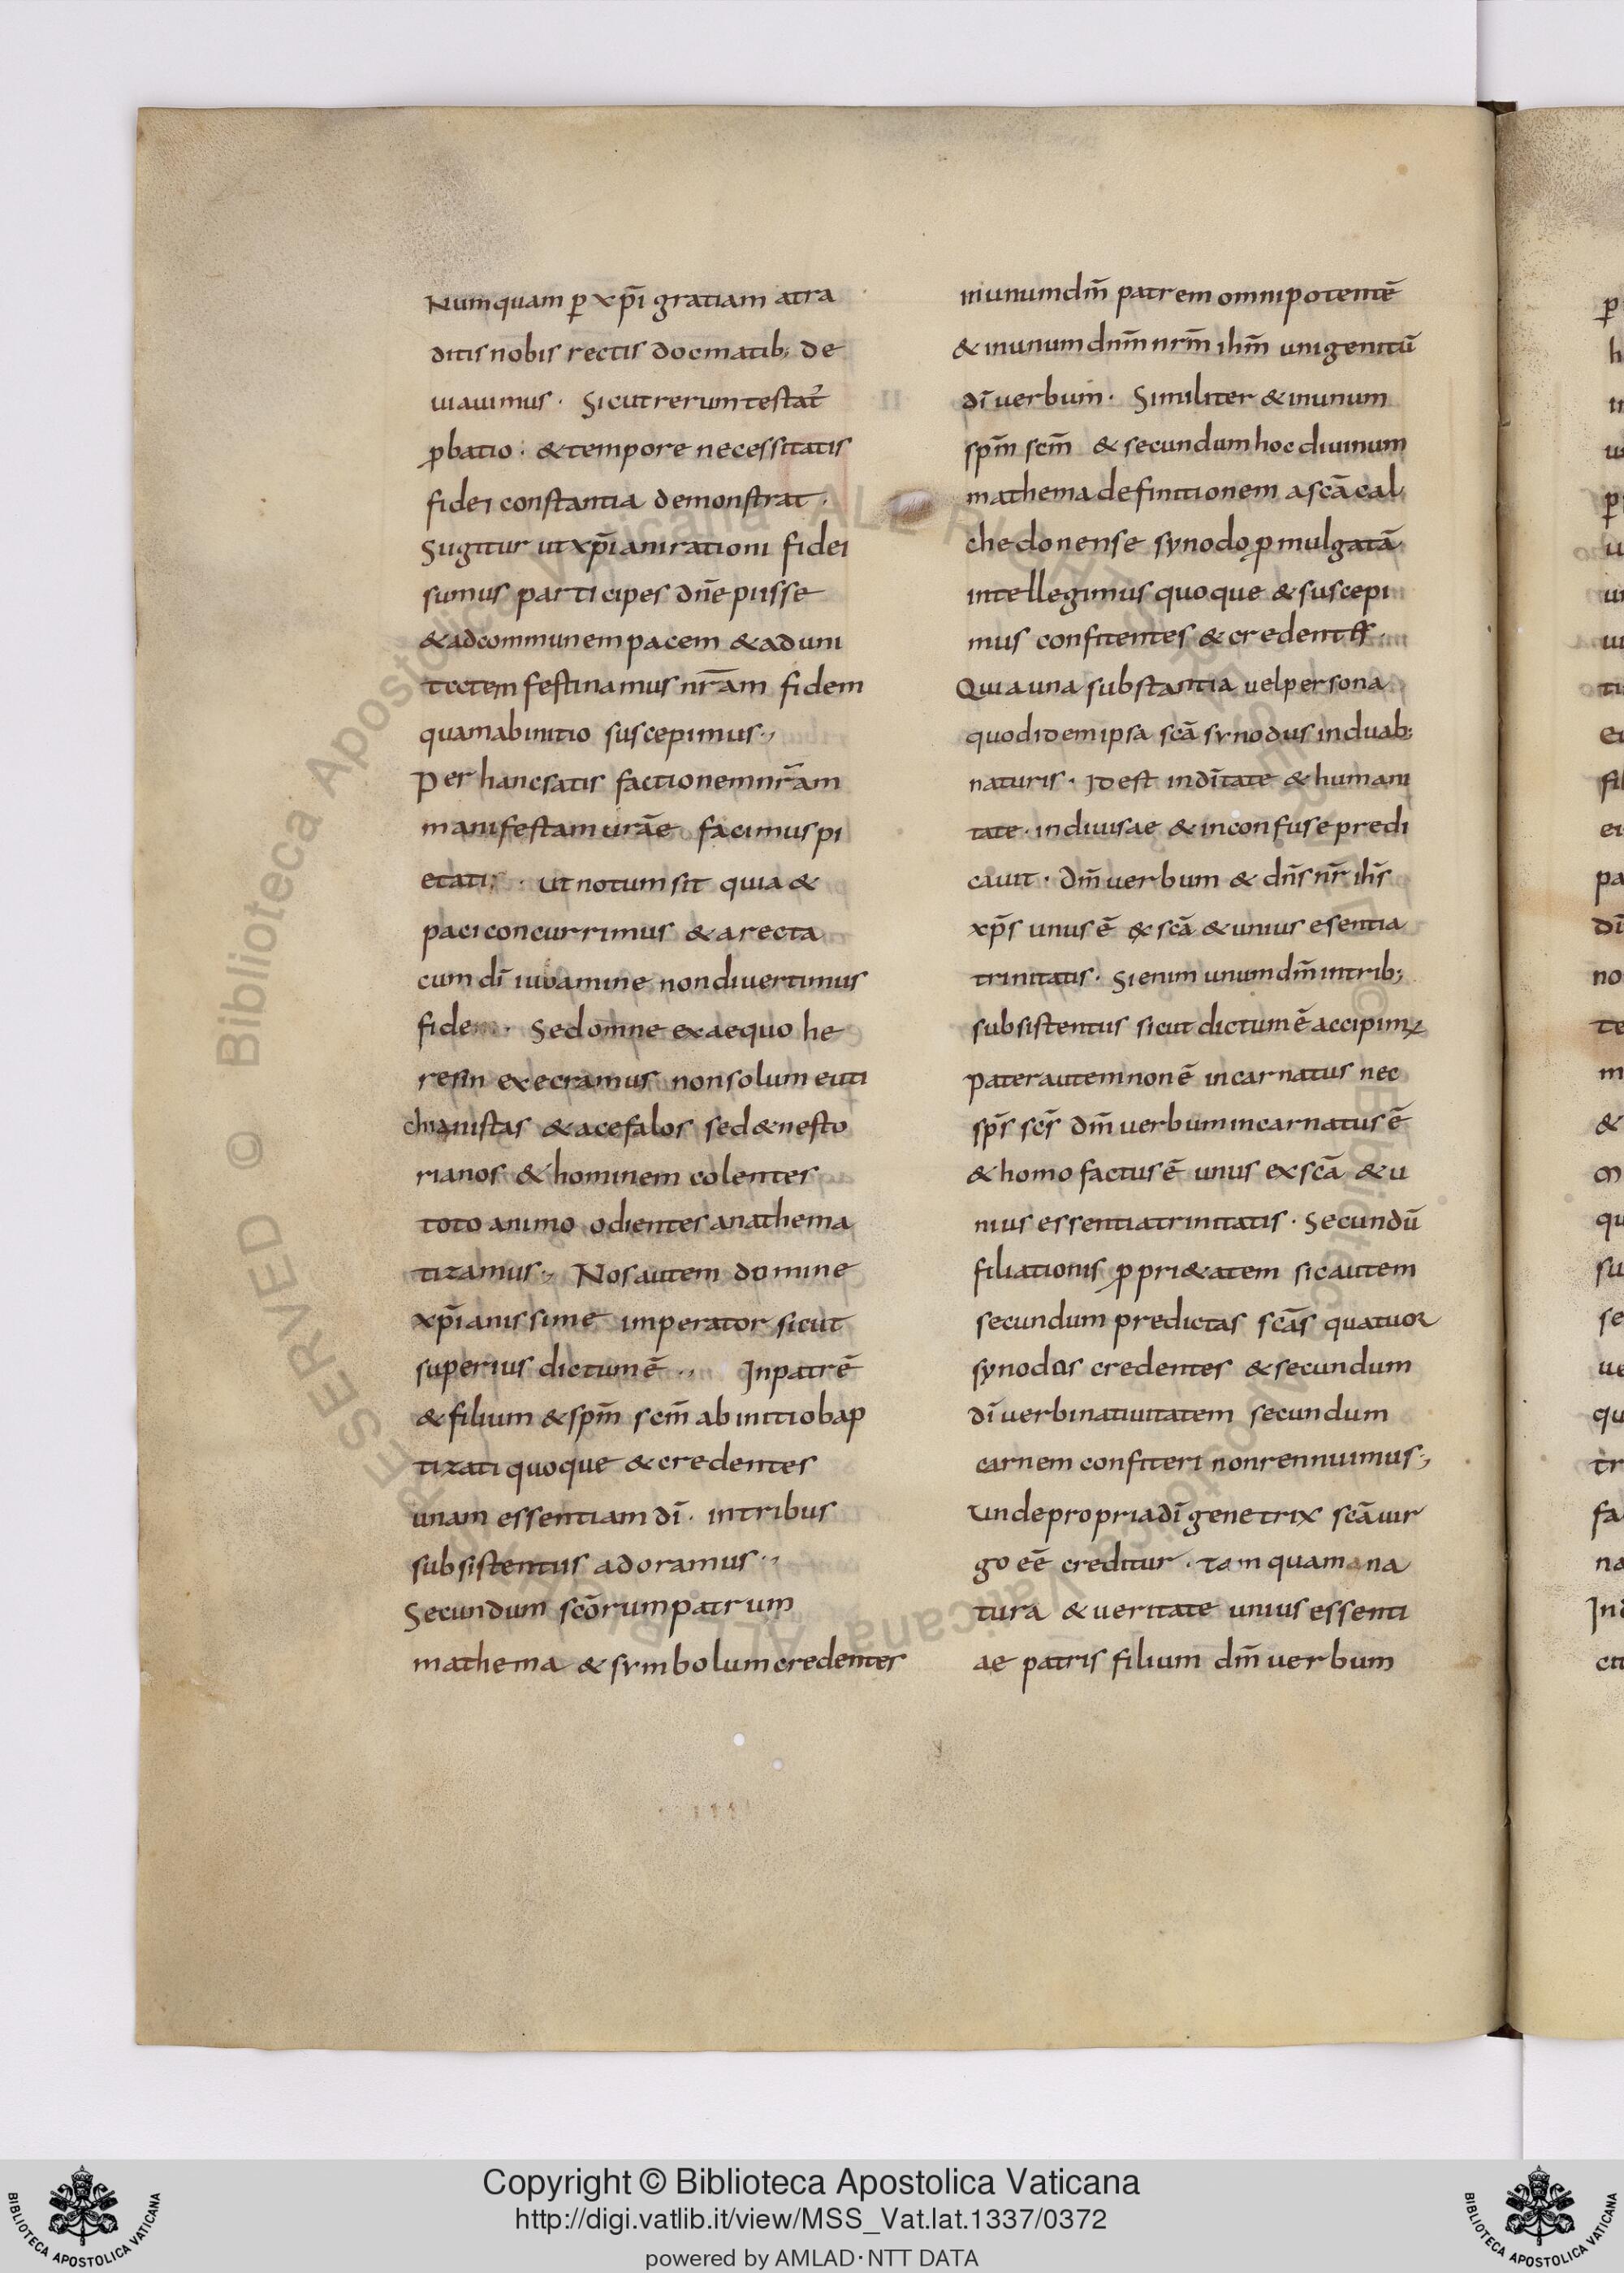 Numquam ꝑ xp̄i gratiam atra
ditis nobis rectis docmatib; de
uiauimus · Sicut rerum testat̄
ꝓbatio · & tempore necessitatis
fidei constantia demonstrat ·
Sugitur ut xp̄iani rationi fidei
sumus participes dn̄e piisse
& ad communem pacem & ad uni
tectem festinamus nr̄am fidem
quam ab initio suscepimus ·,
Per hanc satis factionem nr̄am
manifestam urāe facimus pi
etati · ut notum sit quia &
paci concurrimus & a recta
cum dī iuuamine non diuertimus
fide · Sed omne ex aequo he
resin execramus non solum euti
chianistas & acefalos sed & nesto
rianos & hominem colentes
toto animo odientes anathema
tizamus ·, Nos autem domine
xp̄ianissime imperator sicut
superius dictum ē ·, In patrē
& filium & sp̄m sc̄m ab initio bap
tizati quoque & credentes
unam essentiam dī · in tribus
subsistentiis adoramus ·,
Secundum sc̄orum patrum
mathema & symbolum credentes
in unum dm̄ patrem omnipotentē
& in unum dnm̄ nrm̄ ihm̄ unigenitū
dī uerbum · Similiter & in unum
spm̄ scm̄ & secundum hoc diuinum
mathema definitionem a scā cal
chedonense synodo ꝓmulgatā
intellegimus quoque & suscepi
mus confitentes & credentes ·
Quia una substantia uel persona
quod itdem ipsa scā synodus in duab;
naturis · Id est in dīitate & humani
tate · indiuisae & inconfuse predi
cauit · dm̄ uerbum & dn̄s nr̄ ihs̄
xps̄ unus ē ex scā & unius esentia
trinitatis · Si enim unum dm̄ in trib;
subsistentiis sicut dictum ē accipim;
pater autem non ē incarnatus nec
sps̄ scs̄ dm̄ uerbum incarnatus ē
& homo factus ē unus ex scā & u
nius essentia trinitatis · Secundū
filiationis ꝓpri&atem sic autem
secundum predictas scās quatuor
synodos credentes & secundum
dī uerbi natiuitatem secundum
carnem confiteri non rennuimus ·,
Unde propria dī genetrix scā uir
go eē creditur · tam quam a na
tura & ueritate unius essenti
ae patris filium dm̄ uerbum
Copyright © Biblioteca Apostolica Vaticana
http://digi.vatlib.it/view/MSS_Vat.lat.1337/0372
powered by AMLAD·NTT DATA
BIBLIOTECA APOSTOLICA VATICANA
BIBLIOTECA APOSTOLICA VATICANA